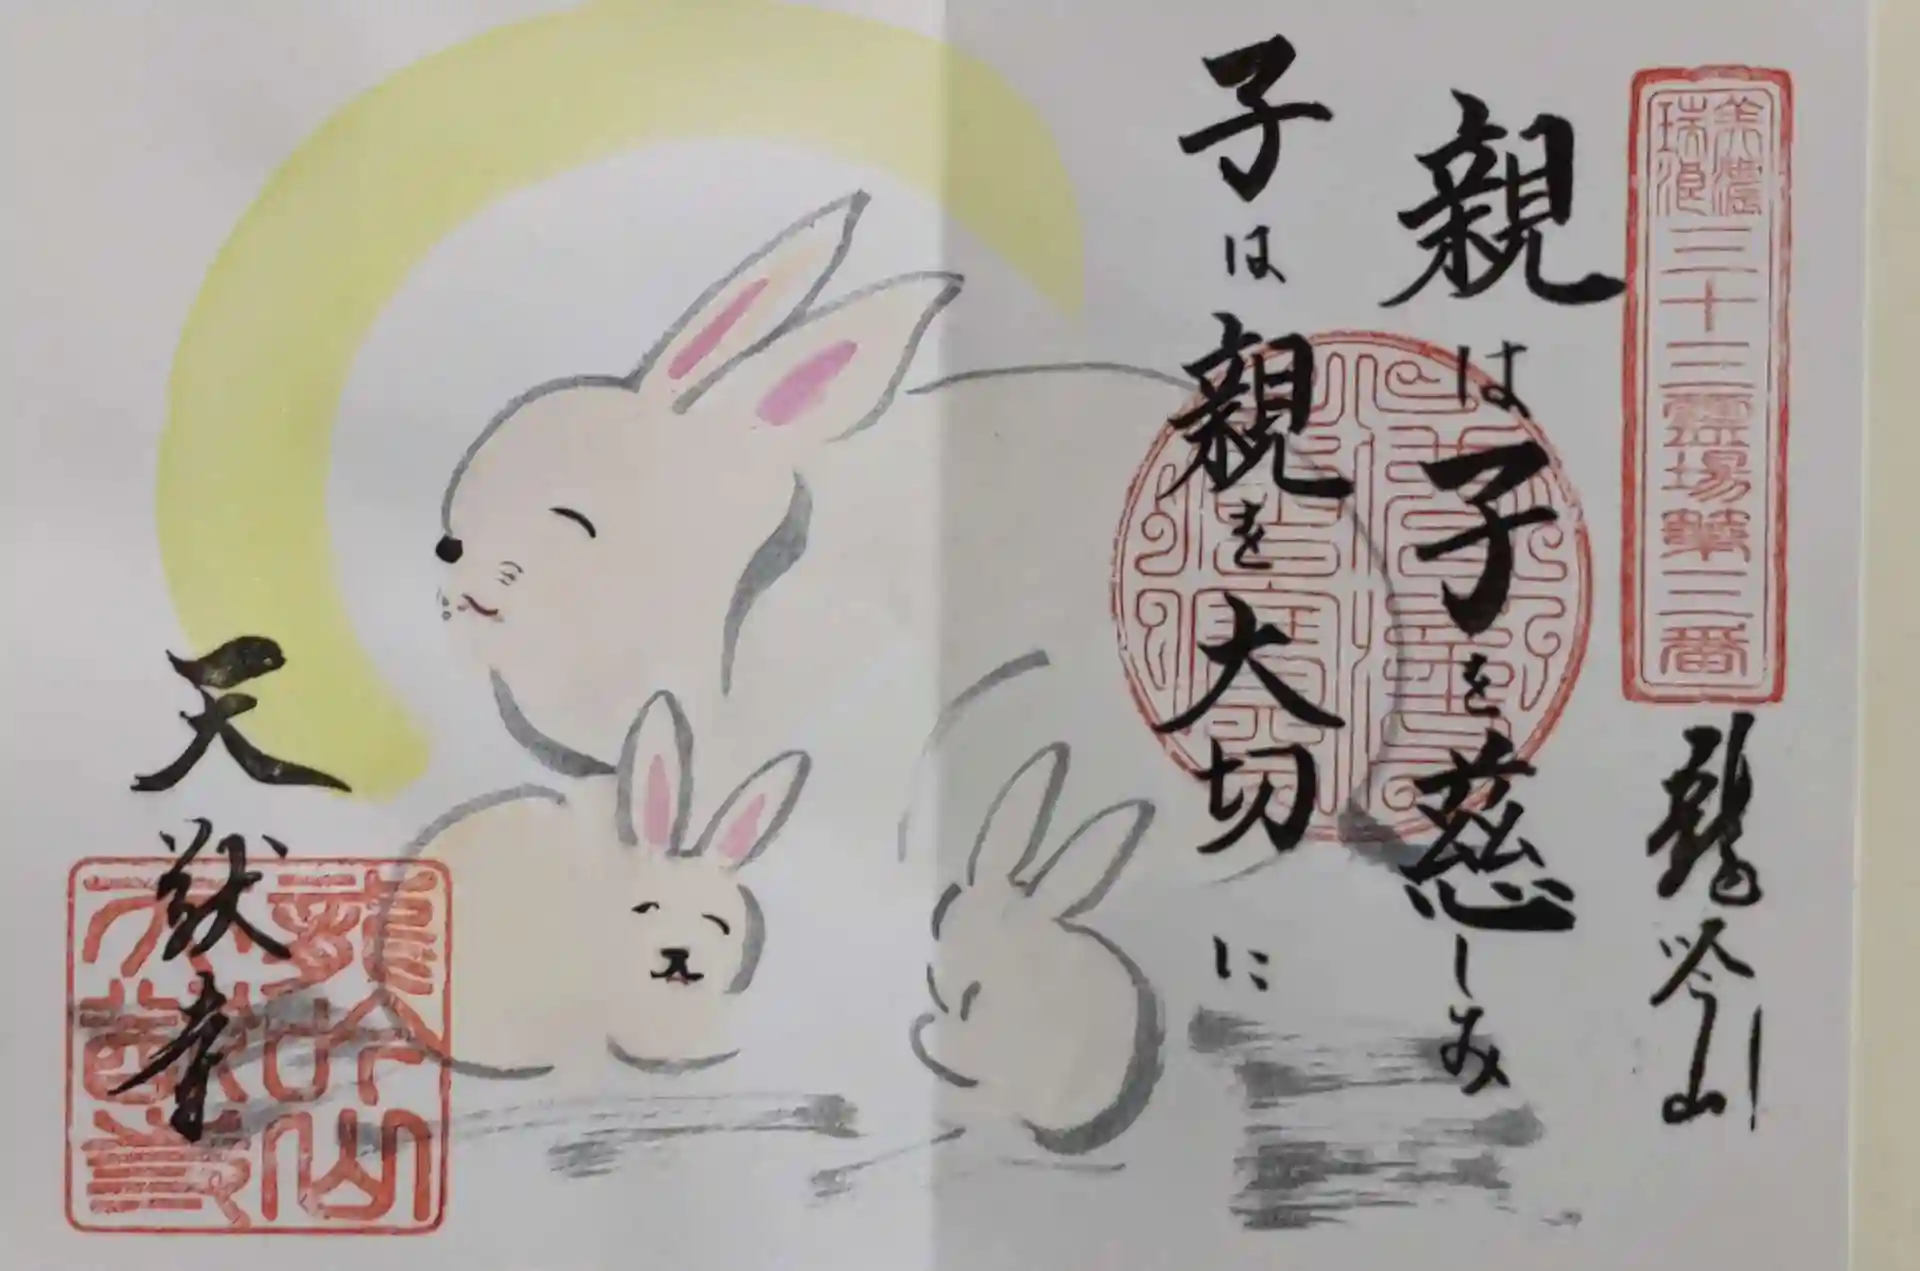 美濃
瑞浪
三十三霊場第三番
龍吟山
親は子を慈しみ
子は親を大切に
天猷寺
龍吟山
天猷寺